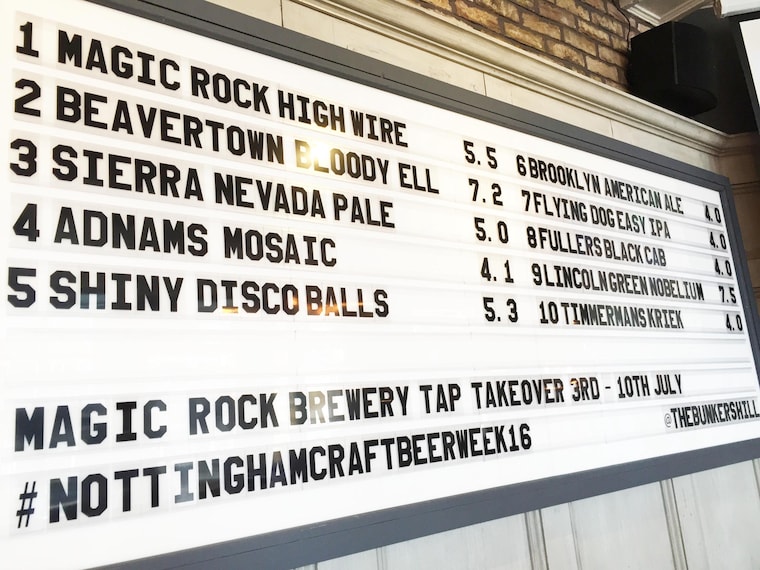 1 MAGIC ROCK HIGH WIRE 5.5
2 BEAVERTOWN BLOODY ELL 7.2
3 SIERRA NEVADA PALE 5.0
4 ADNAMS MOSAIC 4.1
5 SHINY DISCO BALLS 5.3
6 BROOKLYN AMERICAN ALE 4.0
7 FLYING DOG EASY IPA 4.0
8 FULLERS BLACK CAB 4.0
9 LINCOLN GREEN NOBELIUM 7.5
10 TIMMERMANS KRIEK 4.0
MAGIC ROCK BREWERY TAP TAKEOVER 3RD - 10TH JULY
#NOTTINGHAMCRAFTBEERWEEK16
@THEBUNKERSHILL